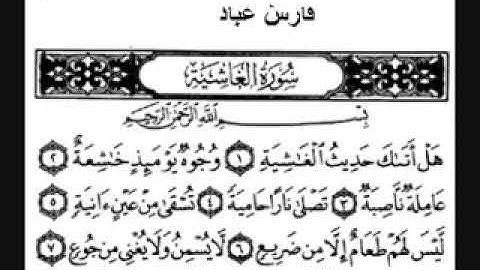 فارس عباد
سُورَةُ الغَاشِيَةِ
بِسْمِ اللَّهِ الرَّحْمَٰنِ الرَّحِيمِ
هَلْ أَتَىٰكَ حَدِيثُ الْغَٰشِيَةِ ١ وُجُوهٌ يَوْمَئِذٍ خَٰشِعَةٌ ٢
عَامِلَةٌ نَّاصِبَةٌ ٣ تَصْلَىٰ نَارًا حَامِيَةً ٤ تُسْقَىٰ مِنْ عَيْنٍ ءَانِيَةٍ ٥
لَّيْسَ لَهُمْ طَعَامٌ إِلَّا مِن ضَرِيعٍ ٦ لَّا يُسْمِنُ وَلَا يُغْنِي مِن جُوعٍ ٧